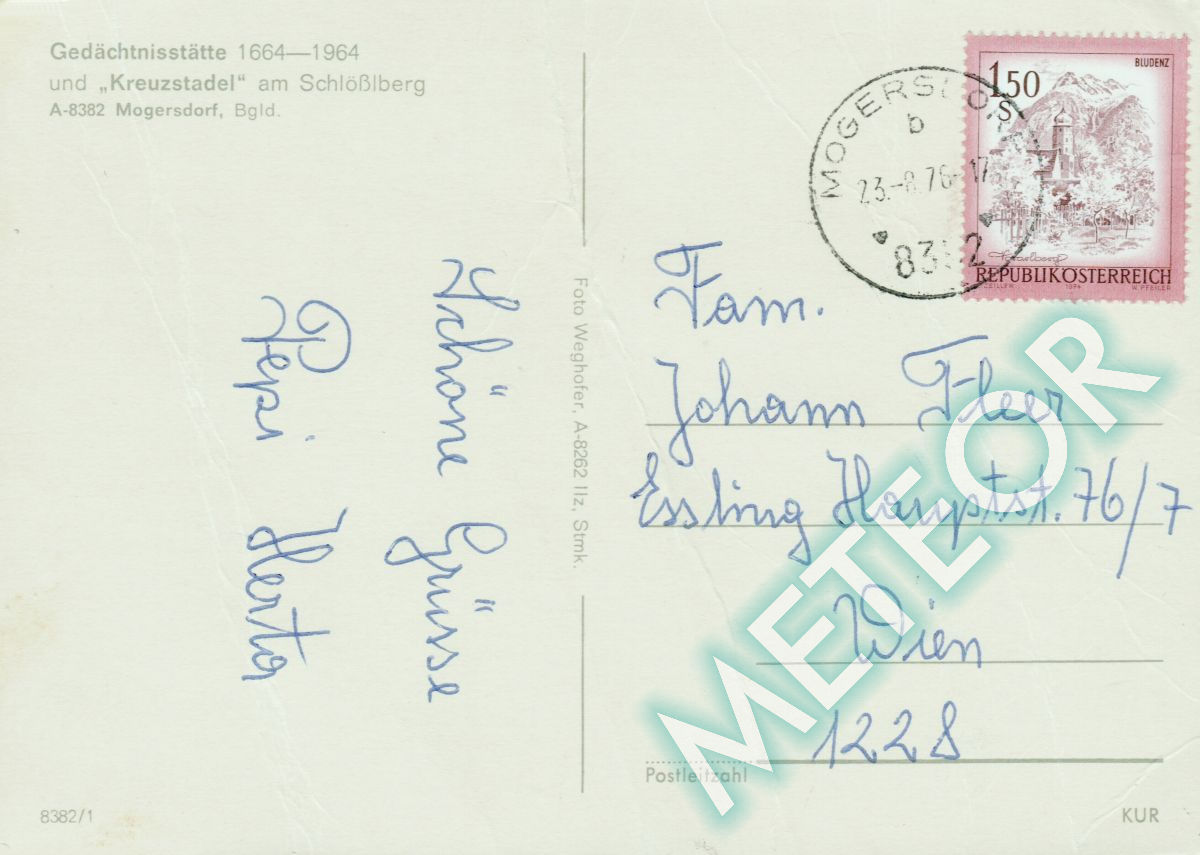 Gedächtnisstätte 1664—1964
und „Kreuzstadel" am Schlößlberg
A-8382 Mogersdorf, Bgld.
BLUDENZ
1,50
S
MOGERSDORF
b
23.-8.76-17
8382
Vorarlberg
REPUBLIK ÖSTERREICH
ZEILLER 1974 W. PFEILER
Schöne Grüsse
Pepi Herta
Foto Weghofer, A-8262 Ilz, Stmk.
Fam.
Johann Fleer
Essling Hauptst. 76/7
Wien
1228
Postleitzahl
8382/1
KUR
METEOR